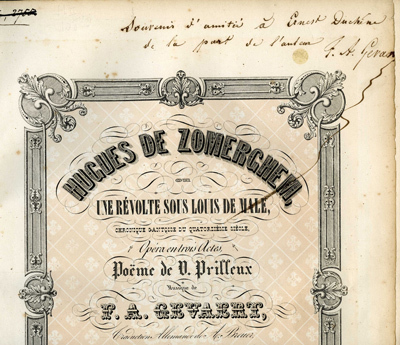 Souvenir d'amitié à Ernest
de la part de l'auteur F. A. Gevaert
HUGUES DE ZOMERGHEM,
OU
UNE RÉVOLTE SOUS LOUIS DE MALE,
CHRONIQUE GANTOISE DU QUATORZIÈME SIÈCLE,
Opéra en trois Actes,
Poëme de V. Prilleux
Musique de
F. A. GEVAERT,
Traduction Allemande de